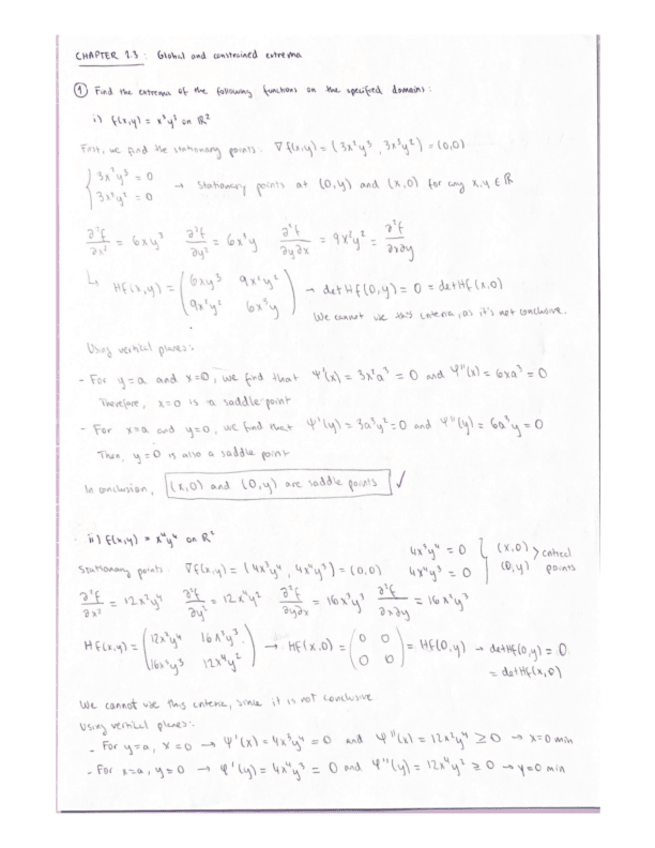 CHAPTER 2.3 : Global and constrained extrema
① Find the extrema of the following functions on the specified domains:
i) f(x,y) = x³y³ on ℝ²
First, we find the stationary points: ∇f(x,y) = (3x²y³, 3x³y²) = (0,0)
{ 3x²y³ = 0
{ 3x³y² = 0 → Stationary points at (0,y) and (x,0) for any x,y ∈ ℝ
∂²f/∂x² = 6xy³ ∂²f/∂y² = 6x³y ∂²f/∂y∂x = 9x²y² = ∂²f/∂x∂y
↳ Hf(x,y) = ( 6xy³ 9x²y² ; 9x²y² 6x³y ) → det Hf(0,y) = 0 = det Hf(x,0)
We cannot use this criteria, as it's not conclusive.
Using vertical planes:
- For y=a and x=0, we find that Ψ'(x) = 3x²a³ = 0 and Ψ''(x) = 6xa³ = 0
Therefore, x=0 is a saddle point
- For x=a and y=0, we find that Ψ'(y) = 3a³y² = 0 and Ψ''(y) = 6a³y = 0
Then, y=0 is also a saddle point
In conclusion, (x,0) and (0,y) are saddle points ✓
ii) f(x,y) = x⁴y⁴ on ℝ²
Stationary points: ∇f(x,y) = (4x³y⁴, 4x⁴y³) = (0,0) 4x³y⁴ = 0 4x⁴y³ = 0 } (x,0) (0,y) > critical points
∂²f/∂x² = 12x²y⁴ ∂²f/∂y² = 12x⁴y² ∂²f/∂y∂x = 16x³y³ ∂²f/∂x∂y = 16x³y³
Hf(x,y) = ( 12x²y⁴ 16x³y³ ; 16x³y³ 12x⁴y² ) → Hf(x,0) = ( 0 0 ; 0 0 ) = Hf(0,y) → det Hf(0,y) = 0
= det Hf(x,0)
We cannot use this criteria, since it is not conclusive
Using vertical planes:
- For y=a, x=0 → Ψ'(x) = 4x³y⁴ = 0 and Ψ''(x) = 12x²y⁴ ≥ 0 → x=0 min
- For x=a, y=0 → φ'(y) = 4x⁴y³ = 0 and Ψ''(y) = 12x⁴y² ≥ 0 → y=0 min